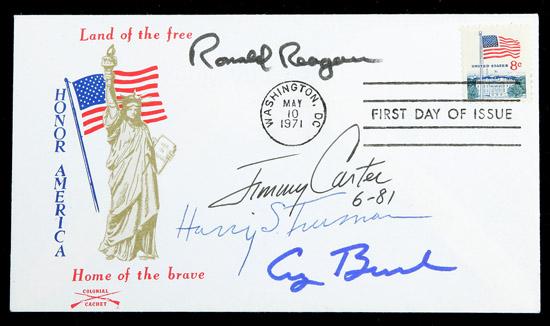 Land of the free
Ronald Reagan
UNITED STATES 8c
HONOR AMERICA
WASHINGTON, DC
MAY
10
1971
FIRST DAY OF ISSUE
Jimmy Carter
6-81
Harry S. Truman
Home of the brave
COLONIAL
CACHET